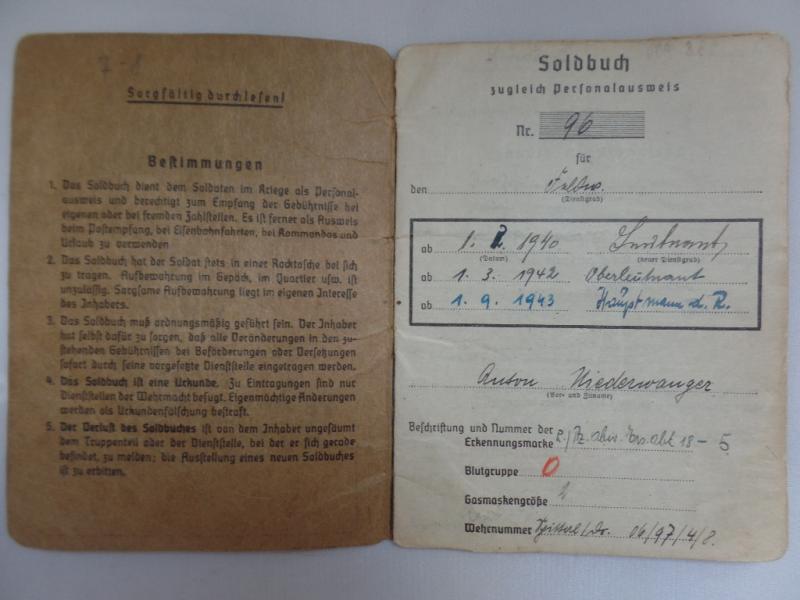 7-8
Sorgfältig durchlesen!
Bestimmungen
1. Das Soldbuch dient dem Soldaten im Kriege als Personal-
ausweis und berechtigt zum Empfang der Gebührnisse bei
eigenen oder bei fremden Zahlstellen. Es ist ferner als Ausweis
beim Postempfang, bei Eisenbahnfahrten, bei Kommandos und
Urlaub zu verwenden
2. Das Soldbuch hat der Soldat stets in einer Rocktasche bei sich
zu tragen. Aufbewahrung im Gepäck, im Quartier usw. ist
unzulässig. Sorgsame Aufbewahrung liegt im eigenen Interesse
des Inhabers.
3. Das Soldbuch muß ordnungsmäßig geführt sein. Der Inhaber
hat selbst dafür zu sorgen, daß alle Veränderungen in den zu-
stehenden Gebührnissen bei Beförderungen oder Versetzungen
sofort durch seine vorgesetzte Dienststelle eingetragen werden.
4. Das Soldbuch ist eine Urkunde. Zu Eintragungen sind nur
Dienststellen der Wehrmacht befugt. Eigenmächtige Änderungen
werden als Urkundenfälschung bestraft.
5. Der Verlust des Soldbuches ist von dem Inhaber ungesäumt
dem Truppenteil oder der Dienststelle, bei der er sich gerade
befindet, zu melden; die Ausstellung eines neuen Soldbuches
ist zu erbitten.
Soldbuch
zugleich Personalausweis
Nr. 96
für
den Feldw.
(Dienstgrad)
ab 1. 1940 Leutnant
(Datum) (neuer Dienstgrad)
ab 1. 3. 1942 Oberleutnant
ab 1. 9. 1943 Hauptmann d. R.
Anton Niederwanger
(Vor- und Zuname)
Beschriftung und Nummer der
Erkennungsmarke 2./Pz. abw. Ers. abt 18 - 5
Blutgruppe O
Gasmaskengröße 2
Wehrnummer Spittal/Dr. 06/97/4/8.